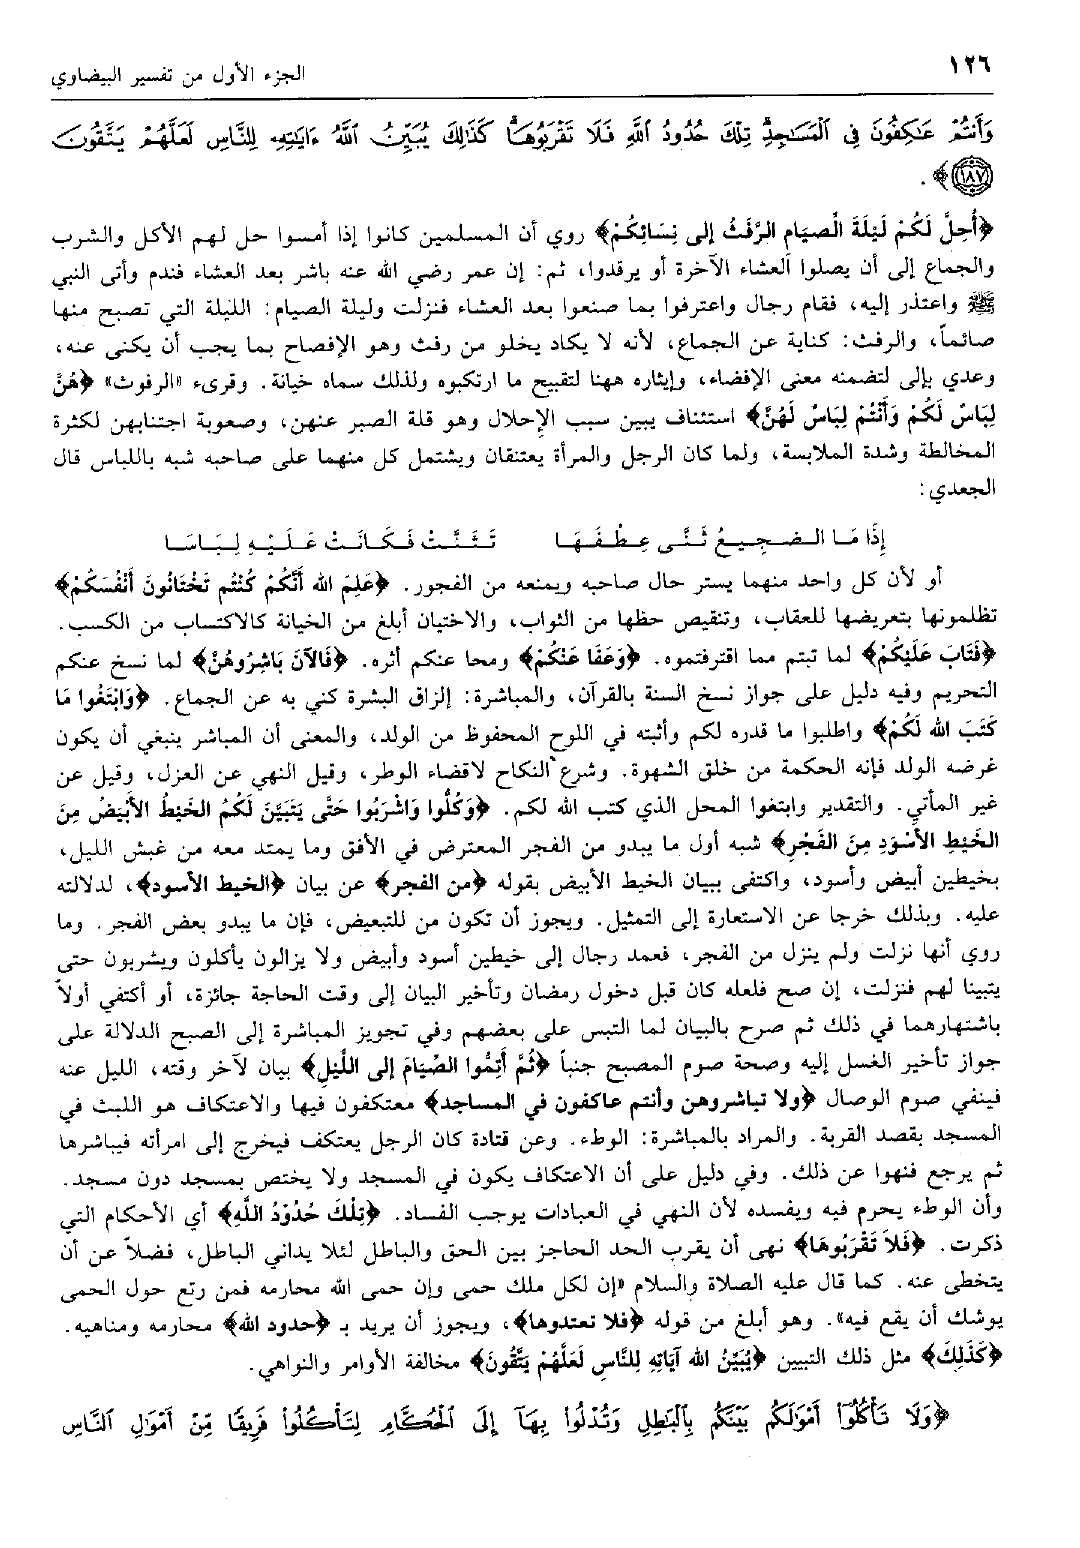 ١٢٦
الجزء الأول من تفسير البيضاوي
وَأَنتُمْ عَٰكِفُونَ فِي ٱلْمَسَٰجِدِ تِلْكَ حُدُودُ ٱللَّهِ فَلَا تَقْرَبُوهَا كَذَٰلِكَ يُبَيِّنُ ٱللَّهُ ءَايَٰتِهِۦ لِلنَّاسِ لَعَلَّهُمْ يَتَّقُونَ
(١٨٧)﴾.
﴿أُحِلَّ لَكُمْ لَيلَةَ الصِيَامِ الرَّفَثُ إلى نِسَائِكُمْ﴾ روي أن المسلمين كانوا إذا أمسوا حل لهم الأكل والشرب
والجماع إلى أن يصلوا العشاء الآخرة أو يرقدوا، ثم: إن عمر رضي الله عنه باشر بعد العشاء فندم وأتى النبي
ﷺ واعتذر إليه، فقام رجال واعترفوا بما صنعوا بعد العشاء فنزلت وليلة الصيام: الليلة التي تصبح منها
صائماً، والرفث: كناية عن الجماع، لأنه لا يكاد يخلو من رفث وهو الإفصاح بما يجب أن يكنى عنه،
وعدي بإلى لتضمنه معنى الإفضاء، وإيثاره ههنا لتقبيح ما ارتكبوه ولذلك سماه خيانة. وقرىء «الرفوث» ﴿هُنَّ
لِبَاسٌ لَكُمْ وَأَنْتُمْ لِبَاسٌ لَهُنَّ﴾ استئناف يبين سبب الإحلال وهو قلة الصبر عنهن، وصعوبة اجتنابهن لكثرة
المخالطة وشدة الملابسة، ولما كان الرجل والمرأة يعتنقان ويشتمل كل منهما على صاحبه شبه باللباس قال
الجعدي:
إِذَا مَا الضجِيعُ ثَنَّى عِطْفَهَا تَثَنَّتْ فَكَانَتْ عَلَيْهِ لِبَاسَا
أو لأن كل واحد منهما يستر حال صاحبه ويمنعه من الفجور. ﴿عَلِمَ الله أَنَّكُمْ كُنْتُم تَخْتَانُونَ أَنْفُسَكُمْ﴾
تظلمونها بتعريضها للعقاب، وتنقيص حظها من الثواب، والاختيان أبلغ من الخيانة كالاكتساب من الكسب.
﴿فَتَابَ عَلَيكُمْ﴾ لما تبتم مما اقترفتموه. ﴿وَعَفَا عَنْكُمْ﴾ ومحا عنكم أثره. ﴿فَالآنَ بَاشِرُوهُنَّ﴾ لما نسخ عنكم
التحريم وفيه دليل على جواز نسخ السنة بالقرآن، والمباشرة: إلزاق البشرة كني به عن الجماع. ﴿وَابْتَغُوا مَا
كَتَبَ الله لَكُمْ﴾ واطلبوا ما قدره لكم وأثبته في اللوح المحفوظ من الولد، والمعنى أن المباشر ينبغي أن يكون
غرضه الولد فإنه الحكمة من خلق الشهوة. وشرع النكاح لاقضاء الوطر، وقيل النهي عن العزل، وقيل عن
غير المأتي. والتقدير وابتغوا المحل الذي كتب الله لكم. ﴿وَكُلُوا وَاشْرَبُوا حَتَّى يَتَبَيَّنَ لَكُمُ الخَيْطُ الأَبْيَضُ مِنَ
الخَيْطِ الأَسْوَدِ مِنَ الفَجْرِ﴾ شبه أول ما يبدو من الفجر المعترض في الأفق وما يمتد معه من غبش الليل،
بخيطين أبيض وأسود، واكتفى ببيان الخيط الأبيض بقوله ﴿من الفجر﴾ عن بيان ﴿الخيط الأسود﴾، لدلالته
عليه. وبذلك خرجا عن الاستعارة إلى التمثيل. ويجوز أن تكون من للتبعيض، فإن ما يبدو بعض الفجر. وما
روي أنها نزلت ولم ينزل من الفجر، فعمد رجال إلى خيطين أسود وأبيض ولا يزالون يأكلون ويشربون حتى
يتبينا لهم فنزلت، إن صح فلعله كان قبل دخول رمضان وتأخير البيان إلى وقت الحاجة جائزة، أو أكتفي أولاً
باشتهارهما في ذلك ثم صرح بالبيان لما التبس على بعضهم وفي تجويز المباشرة إلى الصبح الدلالة على
جواز تأخير الغسل إليه وصحة صوم المصبح جنباً ﴿ثُمَّ أَتِمُّوا الصِّيَامَ إلى اللَّيلِ﴾ بيان لآخر وقته، الليل عنه
فينفي صوم الوصال ﴿ولا تباشروهن وأنتم عاكفون في المساجد﴾ معتكفون فيها والاعتكاف هو اللبث في
المسجد بقصد القربة. والمراد بالمباشرة: الوطء. وعن قتادة كان الرجل يعتكف فيخرج إلى امرأته فيباشرها
ثم يرجع فنهوا عن ذلك. وفي دليل على أن الاعتكاف يكون في المسجد ولا يختص بمسجد دون مسجد.
وأن الوطء يحرم فيه ويفسده لأن النهي في العبادات يوجب الفساد. ﴿تِلْكَ حُدُوْدُ اللَّهِ﴾ أي الأحكام التي
ذكرت. ﴿فَلاَ تَقْرَبُوهَا﴾ نهى أن يقرب الحد الحاجز بين الحق والباطل لئلا يداني الباطل، فضلاً عن أن
يتخطى عنه. كما قال عليه الصلاة والسلام «إن لكل ملك حمى وإن حمى الله محارمه فمن رتع حول الحمى
يوشك أن يقع فيه». وهو أبلغ من قوله ﴿فلا تعتدوها﴾، ويجوز أن يريد بـ ﴿حدود الله﴾ محارمه ومناهيه.
﴿كَذَلِكَ﴾ مثل ذلك التبيين ﴿يُبَيِّنُ الله آيَاتِهِ لِلنَّاسِ لَعَلَّهُمْ يَتَّقُونَ﴾ مخالفة الأوامر والنواهي.
﴿وَلَا تَأْكُلُوٓا۟ أَمْوَٰلَكُم بَيْنَكُم بِٱلْبَٰطِلِ وَتُدْلُوا۟ بِهَآ إِلَى ٱلْحُكَّامِ لِتَأْكُلُوا۟ فَرِيقًا مِّنْ أَمْوَٰلِ ٱلنَّاسِ